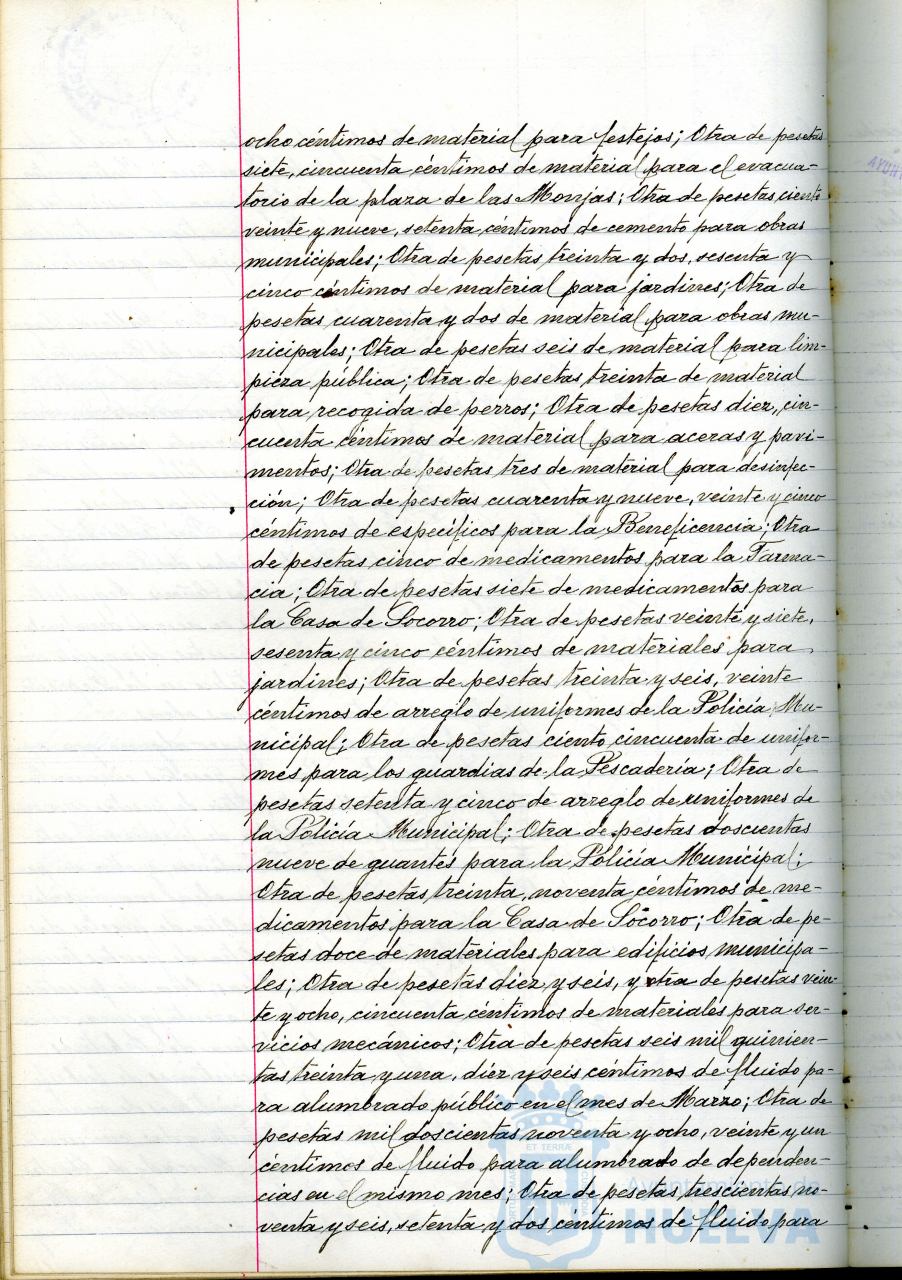 ocho céntimos de material para festejos; Otra de pesetas
siete, cincuenta céntimos de material para el evacua-
torio de la plaza de las Monjas; Otra de pesetas ciento
veinte y nueve, setenta céntimos de cemento para obras
municipales; Otra de pesetas treinta y dos, sesenta y
cinco céntimos de material para jardines; Otra de
pesetas cuarenta y dos de material para obras mu-
nicipales; Otra de pesetas seis de material para lim-
pieza pública; Otra de pesetas treinta de material
para recogida de perros; Otra de pesetas diez, cin-
cuenta céntimos de material para aceras y pavi-
mentos; Otra de pesetas tres de material para desinfec-
ción; Otra de pesetas cuarenta y nueve, veinte y cinco
céntimos de específicos para la Beneficencia; Otra
de pesetas cinco de medicamentos para la Farma-
cia; Otra de pesetas siete de medicamentos para
la Casa de Socorro; Otra de pesetas veinte y siete,
sesenta y cinco céntimos de materiales para
jardines; Otra de pesetas treinta y seis, veinte
céntimos de arreglo de uniformes de la Policía Mu-
nicipal; Otra de pesetas ciento cincuenta de unifor-
mes para los guardias de la Pescadería; Otra de
pesetas setenta y cinco de arreglo de uniformes de
la Policía Municipal; Otra de pesetas doscientas
nueve de guantes para la Policía Municipal;
Otra de pesetas treinta, noventa céntimos de me-
dicamentos para la Casa de Socorro; Otra de pe-
setas doce de materiales para edificios municipa-
les; Otra de pesetas diez y seis, y otra de pesetas vein-
te y ocho, cincuenta céntimos de materiales para ser-
vicios mecánicos; Otra de pesetas seis mil quinien-
tas treinta y una, diez y seis céntimos de fluido pa-
ra alumbrado público en el mes de Marzo; Otra de
pesetas mil doscientas noventa y ocho, veinte y un
céntimos de fluido para alumbrado de dependen-
cias en el mismo mes; Otra de pesetas trescientas no-
venta y seis, setenta y dos céntimos de fluido para
Ayuntamiento de
HUELVA